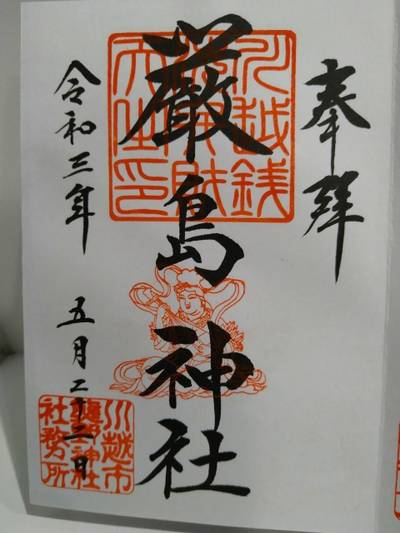 奉拝
厳島神社
令和三年 五月二十二日
川越銭
洗弁財
天之印
川越市
熊野神社
社務所